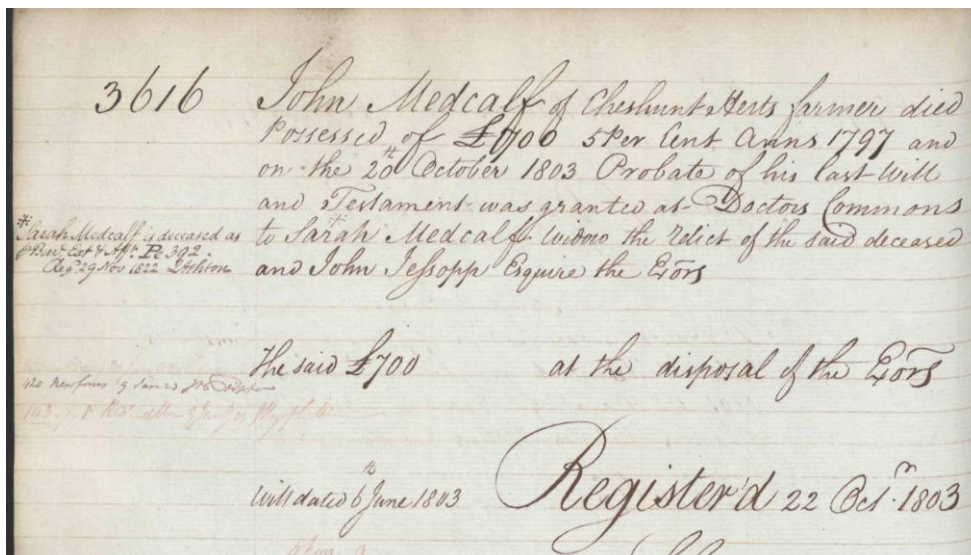 3616 John Medcalf of Cheshunt Herts farmer died
Possessed of £700 5 Per Cent Anns 1797 and
on the 20th October 1803 Probate of his last Will
and Testament was granted at Doctors Commons
to Sarah Medcalf Widow the Relict of the said deceased
and John Jessopp Esquire the Exors
Sarah Medcalf is deceased as
392
Regd 29 Nov 1822
The said £700 at the disposal of the Exors
Will dated 6th June 1803 Register'd 22 Octr 1803